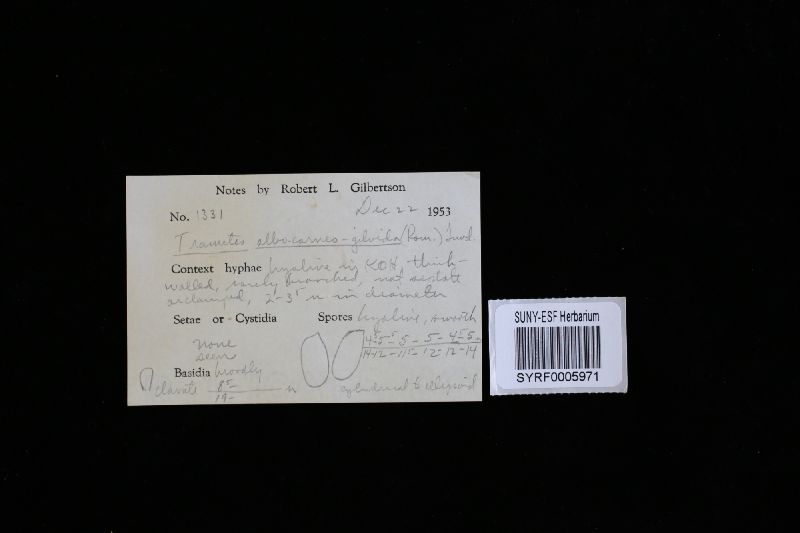 Notes by Robert L. Gilbertson
No. 1331 Dec 22 1953
Trametes albo-carneo-gilvida (Rom.) Lund.
Context hyphae hyaline in KOH, thick-
walled, rarely branched, not septate
or clamped, 2-3⁵ u in diameter
Setae or Cystidia Spores hyaline, smooth
none
seen
4⁵-5-5-5-4⁵-5
14-12-11⁵-12-12-14
Basidia broadly
clavate 8⁵ u
19-
cylindrical to ellipsoid
SUNY-ESF Herbarium
SYRF0005971